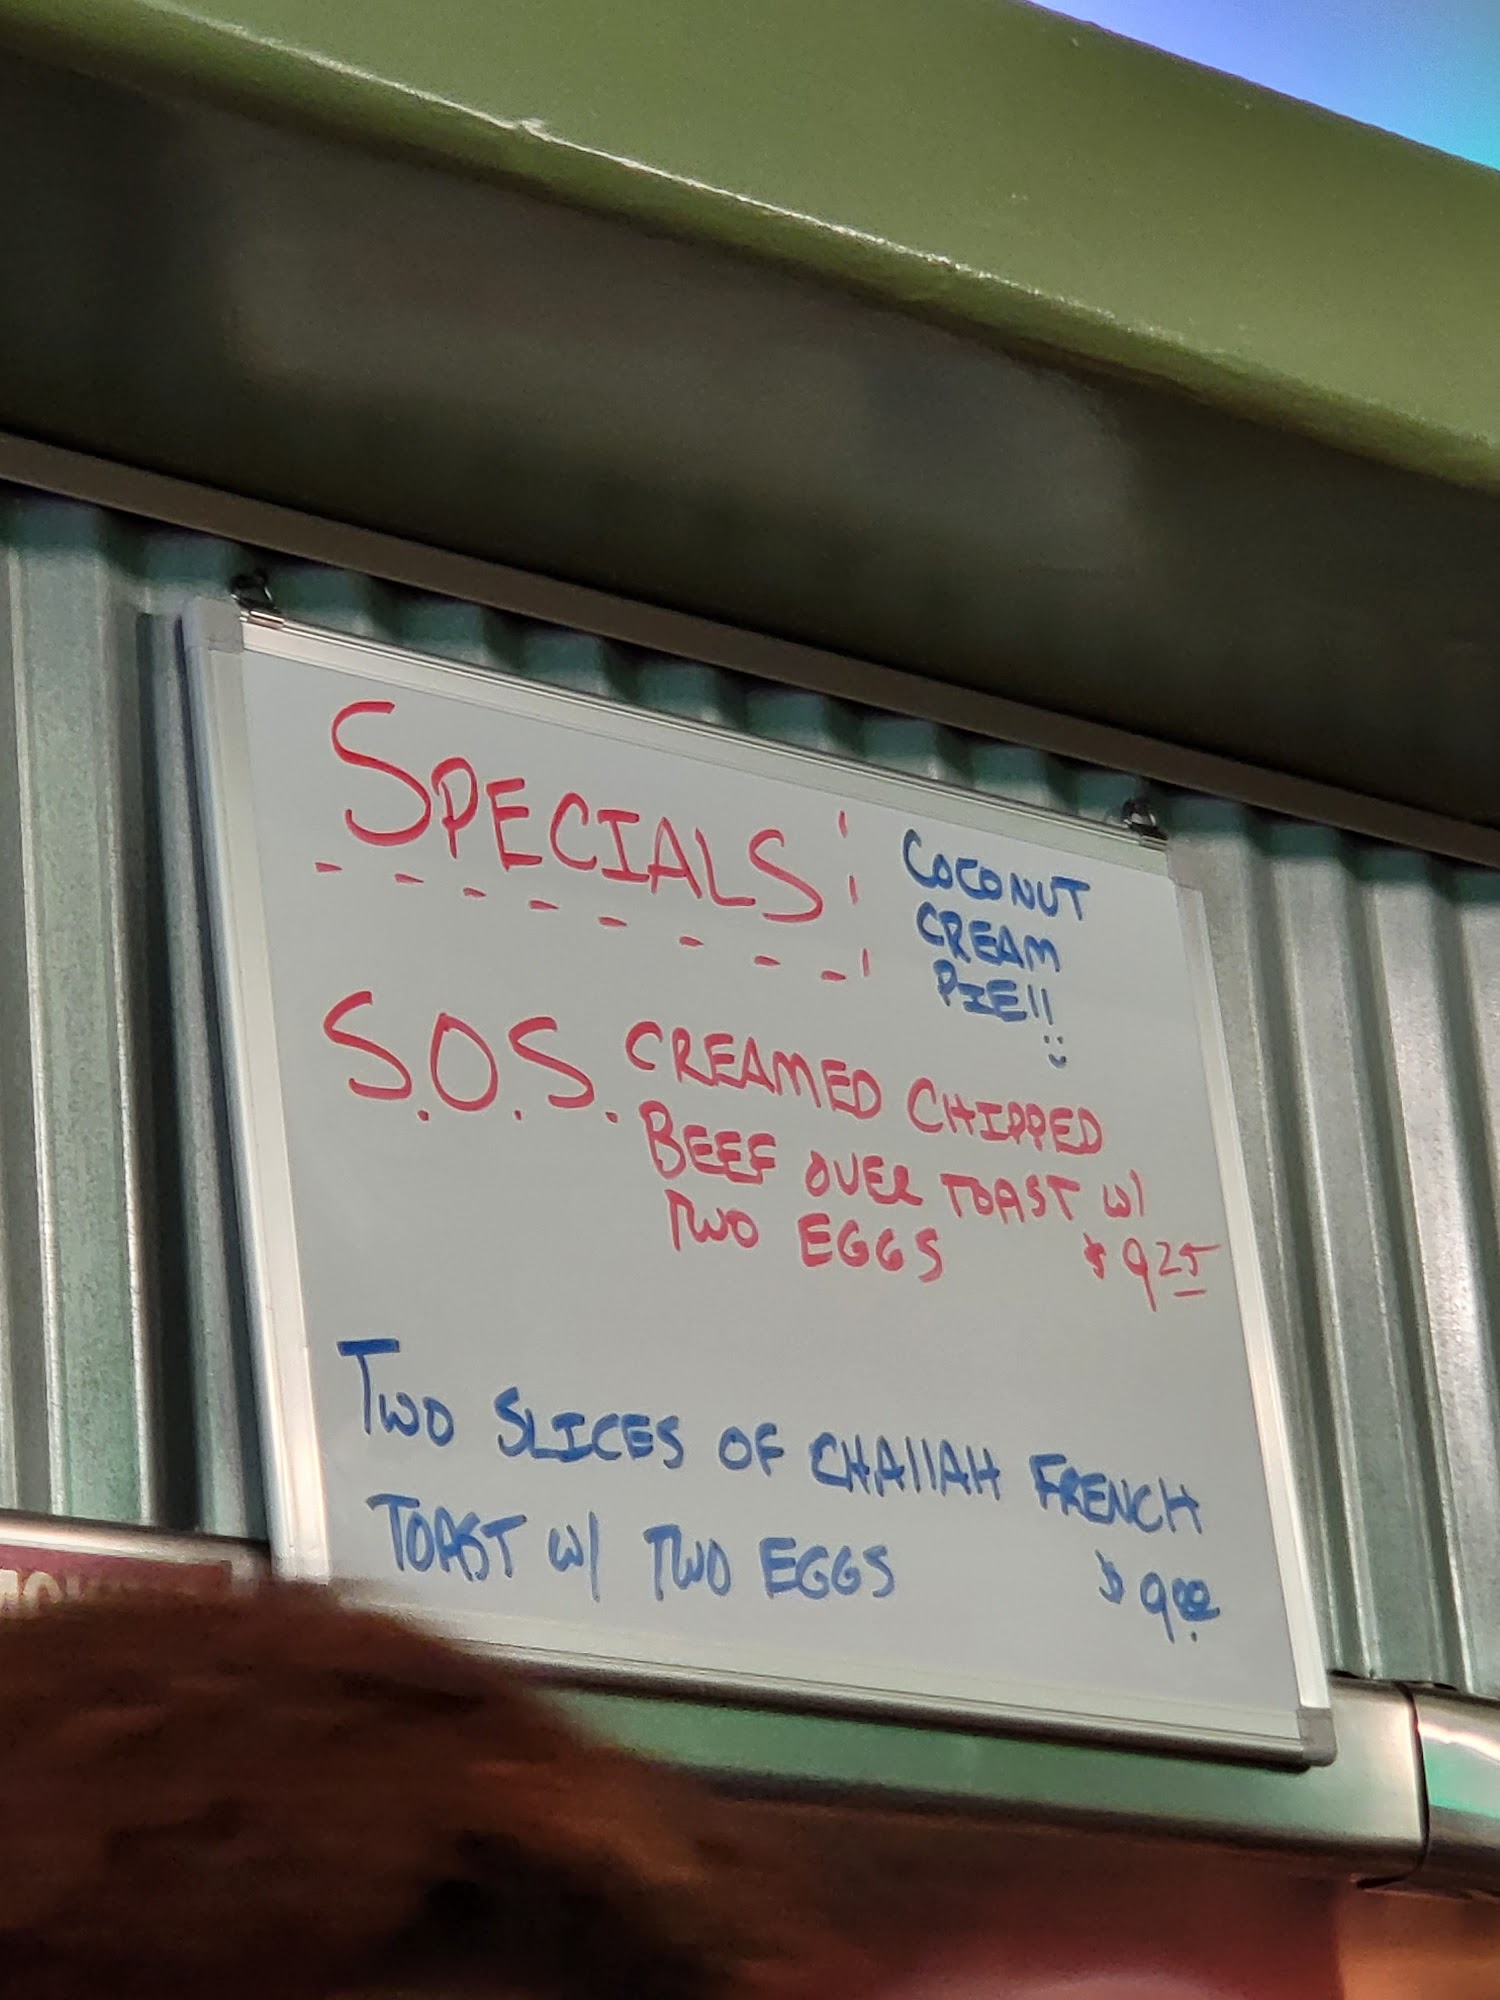 SPECIALS
COCONUT
CREAM
PIE!!
S.O.S. CREAMED CHIPPED
BEEF OVER TOAST W/
TWO EGGS $9.25
TWO SLICES OF CHALLAH FRENCH
TOAST W/ TWO EGGS $9.00